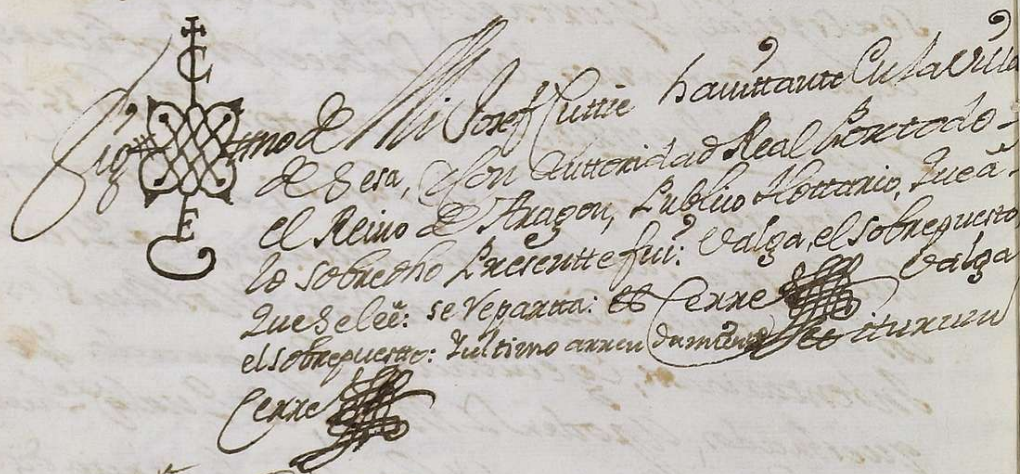 C
E
Sig no de Mi Josef Cuttie havittante En la Villa
de Sesa, Y con Auttoridad Real Por todo
el Reino de Aragon, Publico Nottario, Que â
lo sobredho Presentte fui: Valga, el sobrepuesto,
Que se leê: se reparttta: et Cerre Valga
el sobrepuestto: Y ultimo arrendamiento et iterum
Cerre